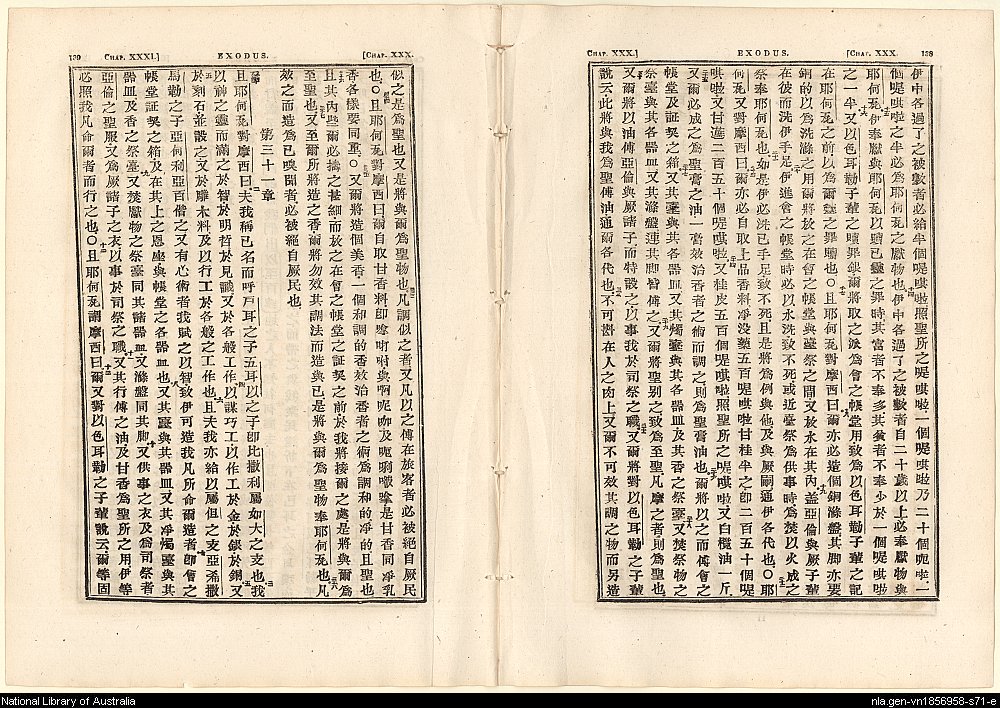 138
[CHAP. XXX.
EXODUS.
CHAP. XXX.]
伊中各過了之被數者必給半個㖷嘁啦照聖所之㖷嘁啦一個㖷嘁啦乃二十個呃啦一
個㖷嘁啦之半必為耶何瓦之獻物也伊中各過了之被數者自二十歲以上必奉獻物與
耶何瓦伊奉獻與耶何瓦以贖已靈之罪時其富者不奉多其貧者不奉少於一個㖷嘁啦
之一半又以色耳勒子輩之贖罪銀爾將取之派為會之帳堂用致為以色耳勒子輩之記
在耶何瓦之前以為爾靈之罪贖也〇且耶何瓦對摩西曰爾亦必造個銅滌盤其脚亦要
銅的以為洗滌之用爾將放之在會之帳堂與臺祭之間又放水在其內盖亞倫與厥子輩
在彼而洗伊手足伊進會之帳堂時必以水洗致不死或近臺祭為供事時為焚以火成之
祭奉耶何瓦也如是伊必洗已手足致不死且是將為例與他及與厥嗣通伊各代也〇耶
何瓦又對摩西曰爾亦必自取上品香料凈没藥五百㖷嘁啦甘桂半之即二百五十個㖷
嘁啦又甘蓮二百五十個㖷嘁啦又桂皮五百個㖷嘁啦照聖所之㖷嘁啦又白欖油一斤
又爾必成之為聖膏之油一膏效治香者之術而調之則為聖膏油也爾將以之而傅會之
帳堂及証契之箱又其臺與其各器皿又其燭臺與其各器皿及其香之祭臺又焚祭物之
祭臺與其各器皿又其滌盤連其脚皆傅之又爾將聖别之致為至聖凡摩之者則為聖也
又爾將以油傅亞倫與厥諸子而特設之以事我於司祭之職又爾將對以色耳勒之子輩
說云此將與我為聖傅油通爾各代也不可斟在人之肉上又爾不可效其調之物而另造
[CHAP. XXX.
EXODUS.
CHAP. XXXI.]
139
似之是為聖也又是將與爾為聖物也凡調似之者又凡以之傅在旅客者必被絕自厥民
也〇且耶何瓦對摩西曰爾自取甘香料即
香各樣要同重〇又爾將造個美香一個和調的香效治香者之術為調和的凈的且聖也
且其內些爾必搗之甚細而放之在會之帳堂之証契之前於我將接爾之處是將與爾為
至聖也又至爾所將造之香爾將勿效其調法而造與已是將與爾為聖物奉耶何瓦也凡
效之而造為已嗅聞者必被絕自厥民也
第三十一章
且耶何瓦對摩西曰夫我稱已名而呼戶耳之子五耳以之子即比撒利屬如大之支也我
以神之靈而滿之於智於明哲於見識又於各般工作以謀巧工以作工於金於銀於銅又
於刻石並設之又於雕木料及以行工於各般之工作也且夫我亦給以屬但之支亞希撒
馬勒之子亞何利亞百偕之又有心術者我賦之以智致伊可造我凡所命爾造者即會之
帳堂証契之箱及在其上之恩座與帳堂之各器皿也又其臺與其器皿又其凈燭臺與其
器皿及香之祭臺又焚獻物之祭臺同其諸器皿又滌盤同其脚又供事之衣及為司祭者
亞倫之聖服又為厥諸子之衣以事於司祭之職又其行傅之油及甘香為聖所之用伊等
必照我凡命爾者而行之也〇且耶何瓦謂摩西曰爾又對以色耳勒之子輩說云爾等固
National Library of Australia
nla.gen-vn1856958-s71-e